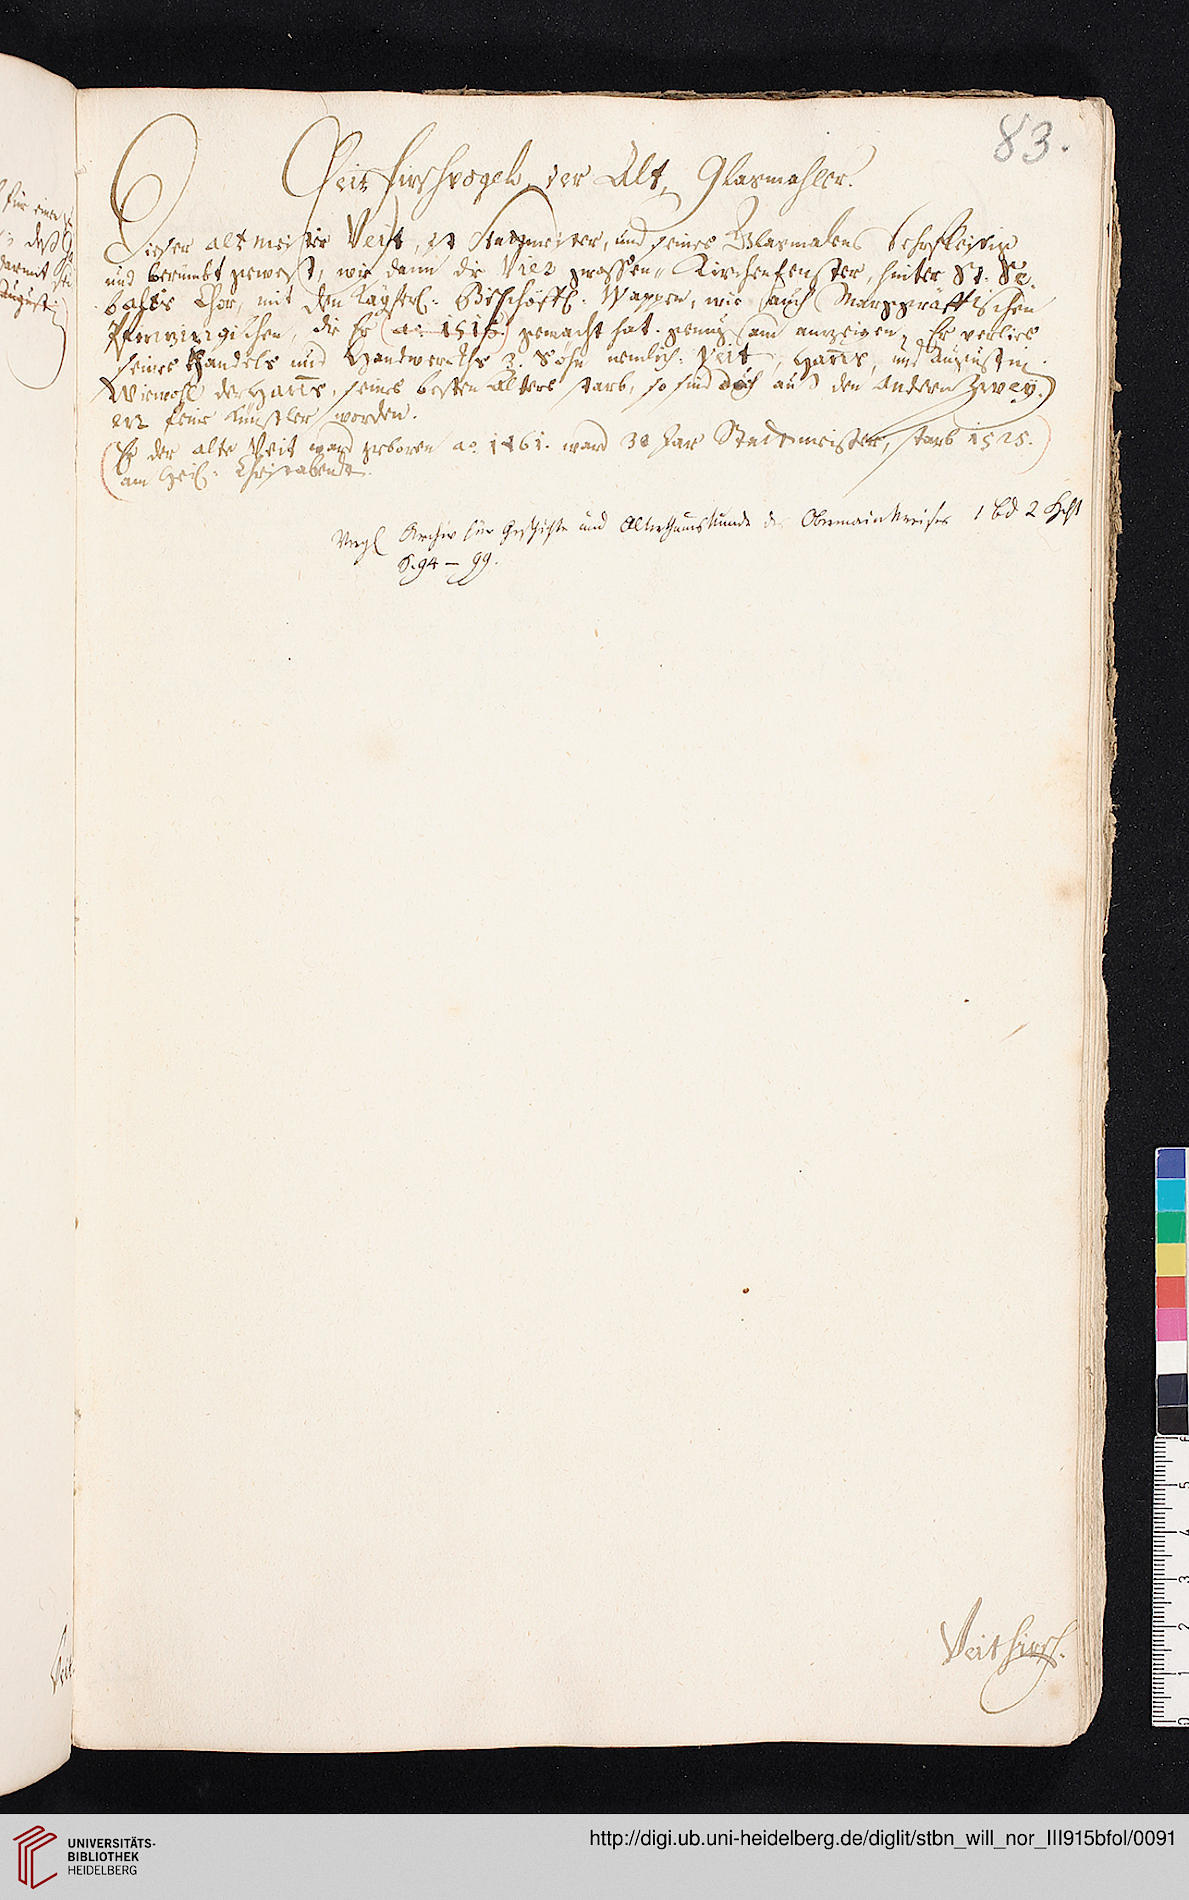 83.
Veit Hirschvogel, der Alt, Glasmahler.
Dieser alt meister Veit, ist Statmeister, und seines Glasmalens hoch
und berümbt gewesst, wie dann die Vier grossen Kirchenfenster, hinter St. Se-
balts Chor, mit den Kayserl: Bischöffl: Wappen, wie auch Marggräfftischen
Pfinzingischen, die Er (ao. 1515) gemacht hat. genug sam anzeigen, Er verlies
seines Handels und Handwerckhs 3. Söhn nemlich: Veit, Hanns, und Augustin
Wiewohl der Hanns, seines besten Alters starb, so sind doch aus den andern Zwey-
en feine Künstler worden.
(Er der alte Veit ward geboren ao. 1461. ward 30 Jar Stadtmeister, starb 1525.
am Heil: Christabendt.
Vergl Archiv für Geschichte und Alterthumskunde des Obermainkreises 1 Bd 2 Heft
S. 94 – 99.
Veit Hirsch.
für einen
deß
darmit
Augusti
Veit
6
5
4
3
2
1
0
UNIVERSITÄTS-
BIBLIOTHEK
HEIDELBERG
http://digi.ub.uni-heidelberg.de/diglit/stbn_will_nor_III915bfol/0091